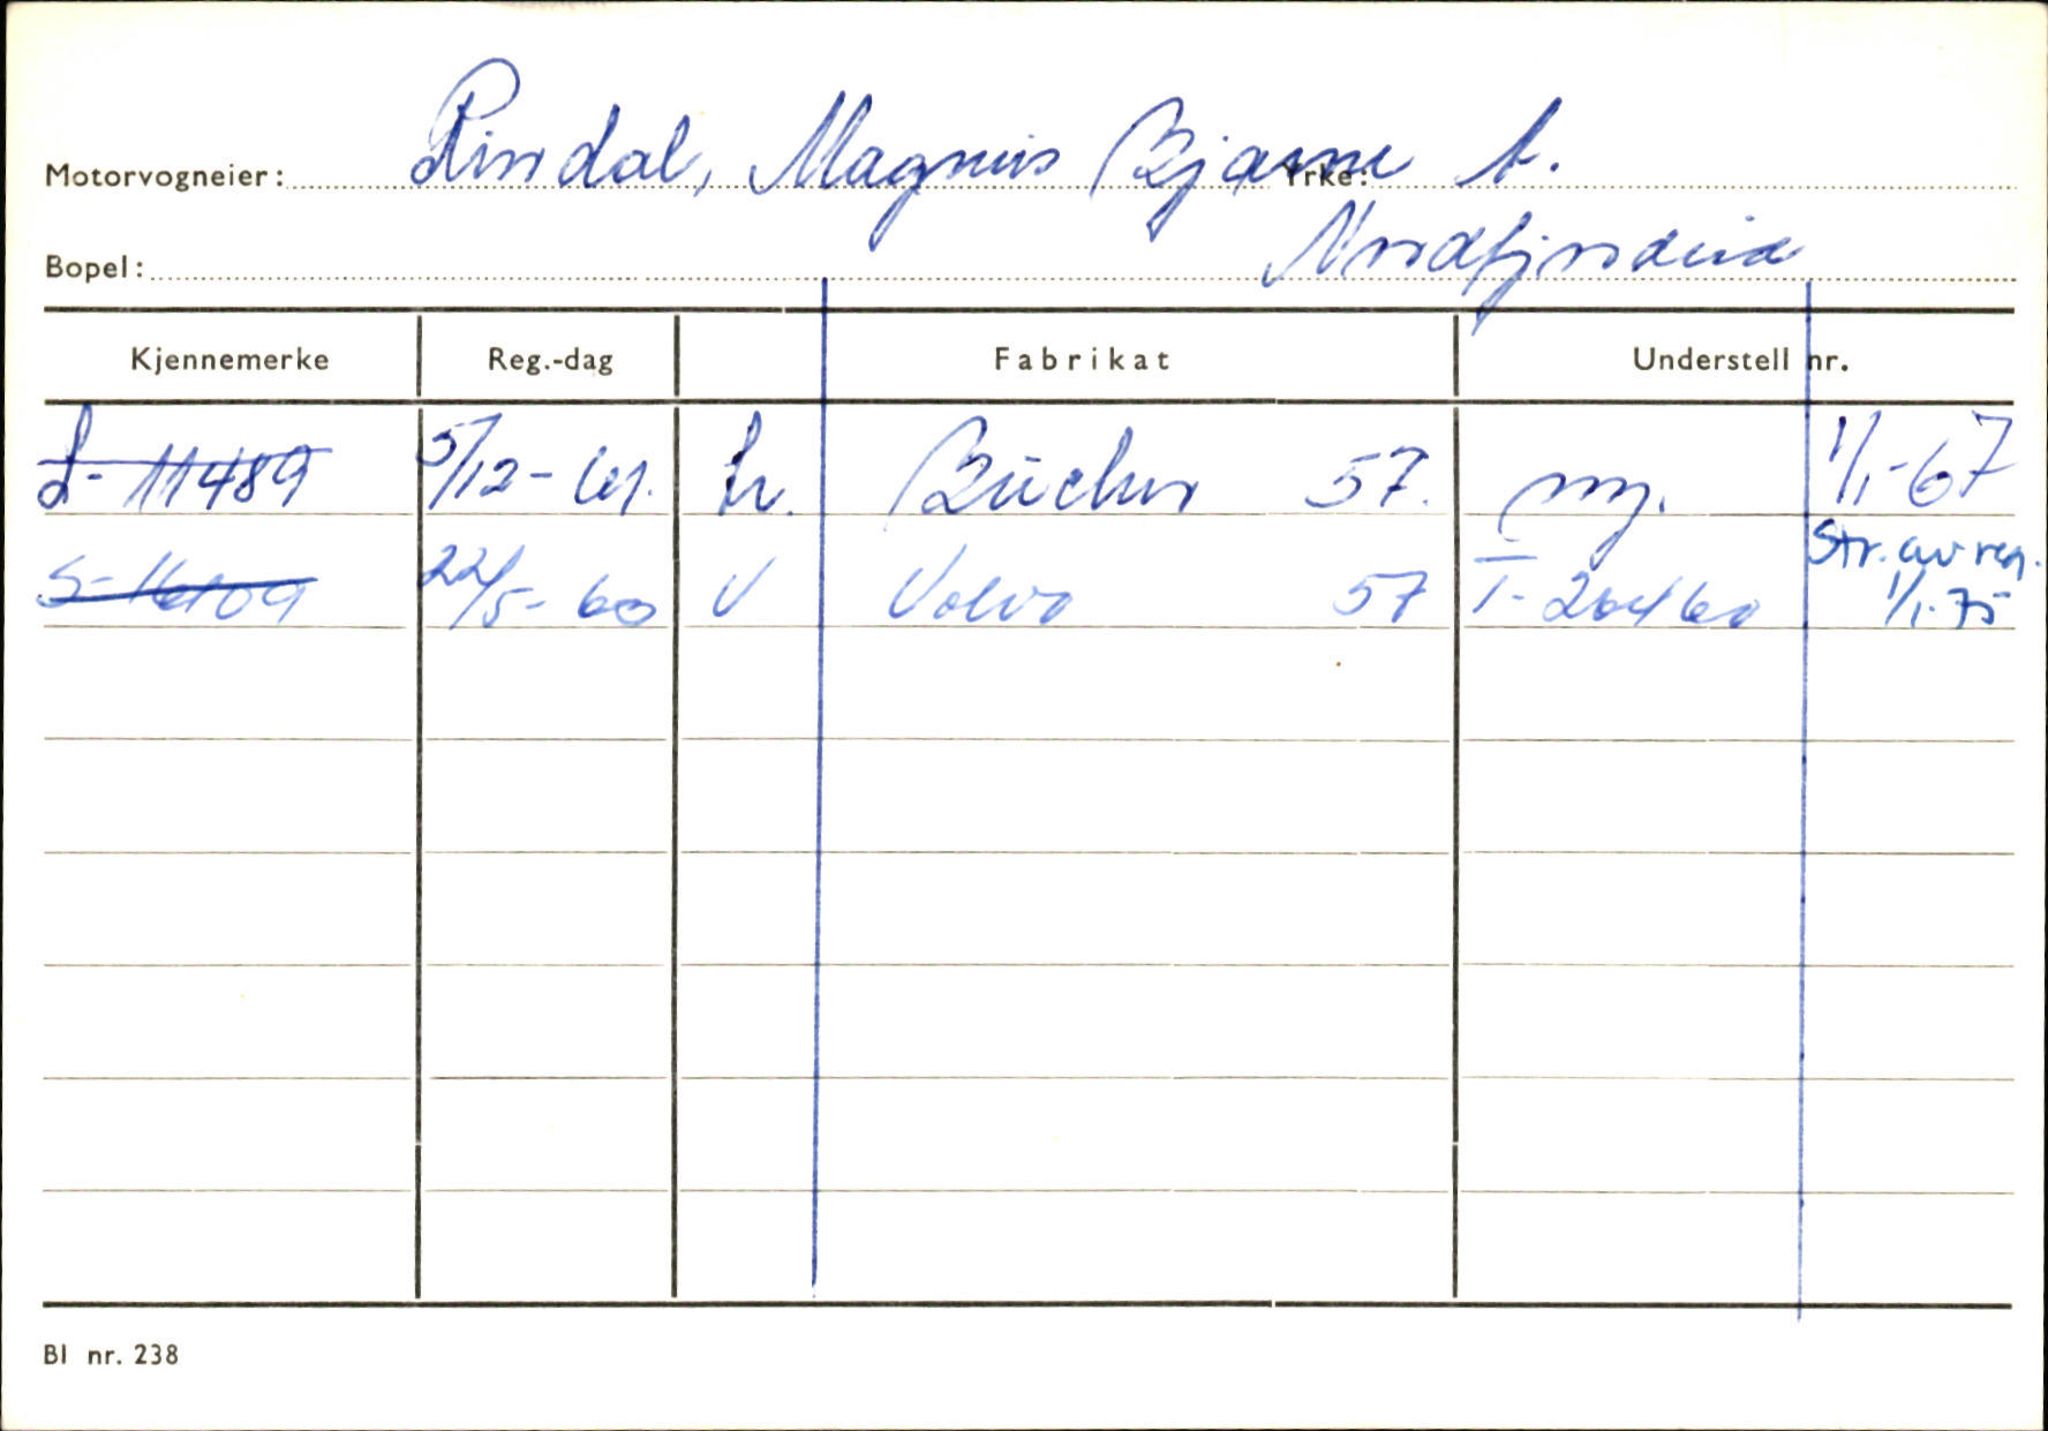 Motorvogneier: Rindal, Magnus Bjarne A. Yrke:
Bopel: Nordfjordeid
Kjennemerke Reg.-dag Fabrikat Understell nr.
S- 11489 5/12-61. tr. Bücher 57. 1/1-67
S-16109 22/5-60 V Volvo 57 T- 26460 Str. av reg. 1/1-75
Bl nr. 238